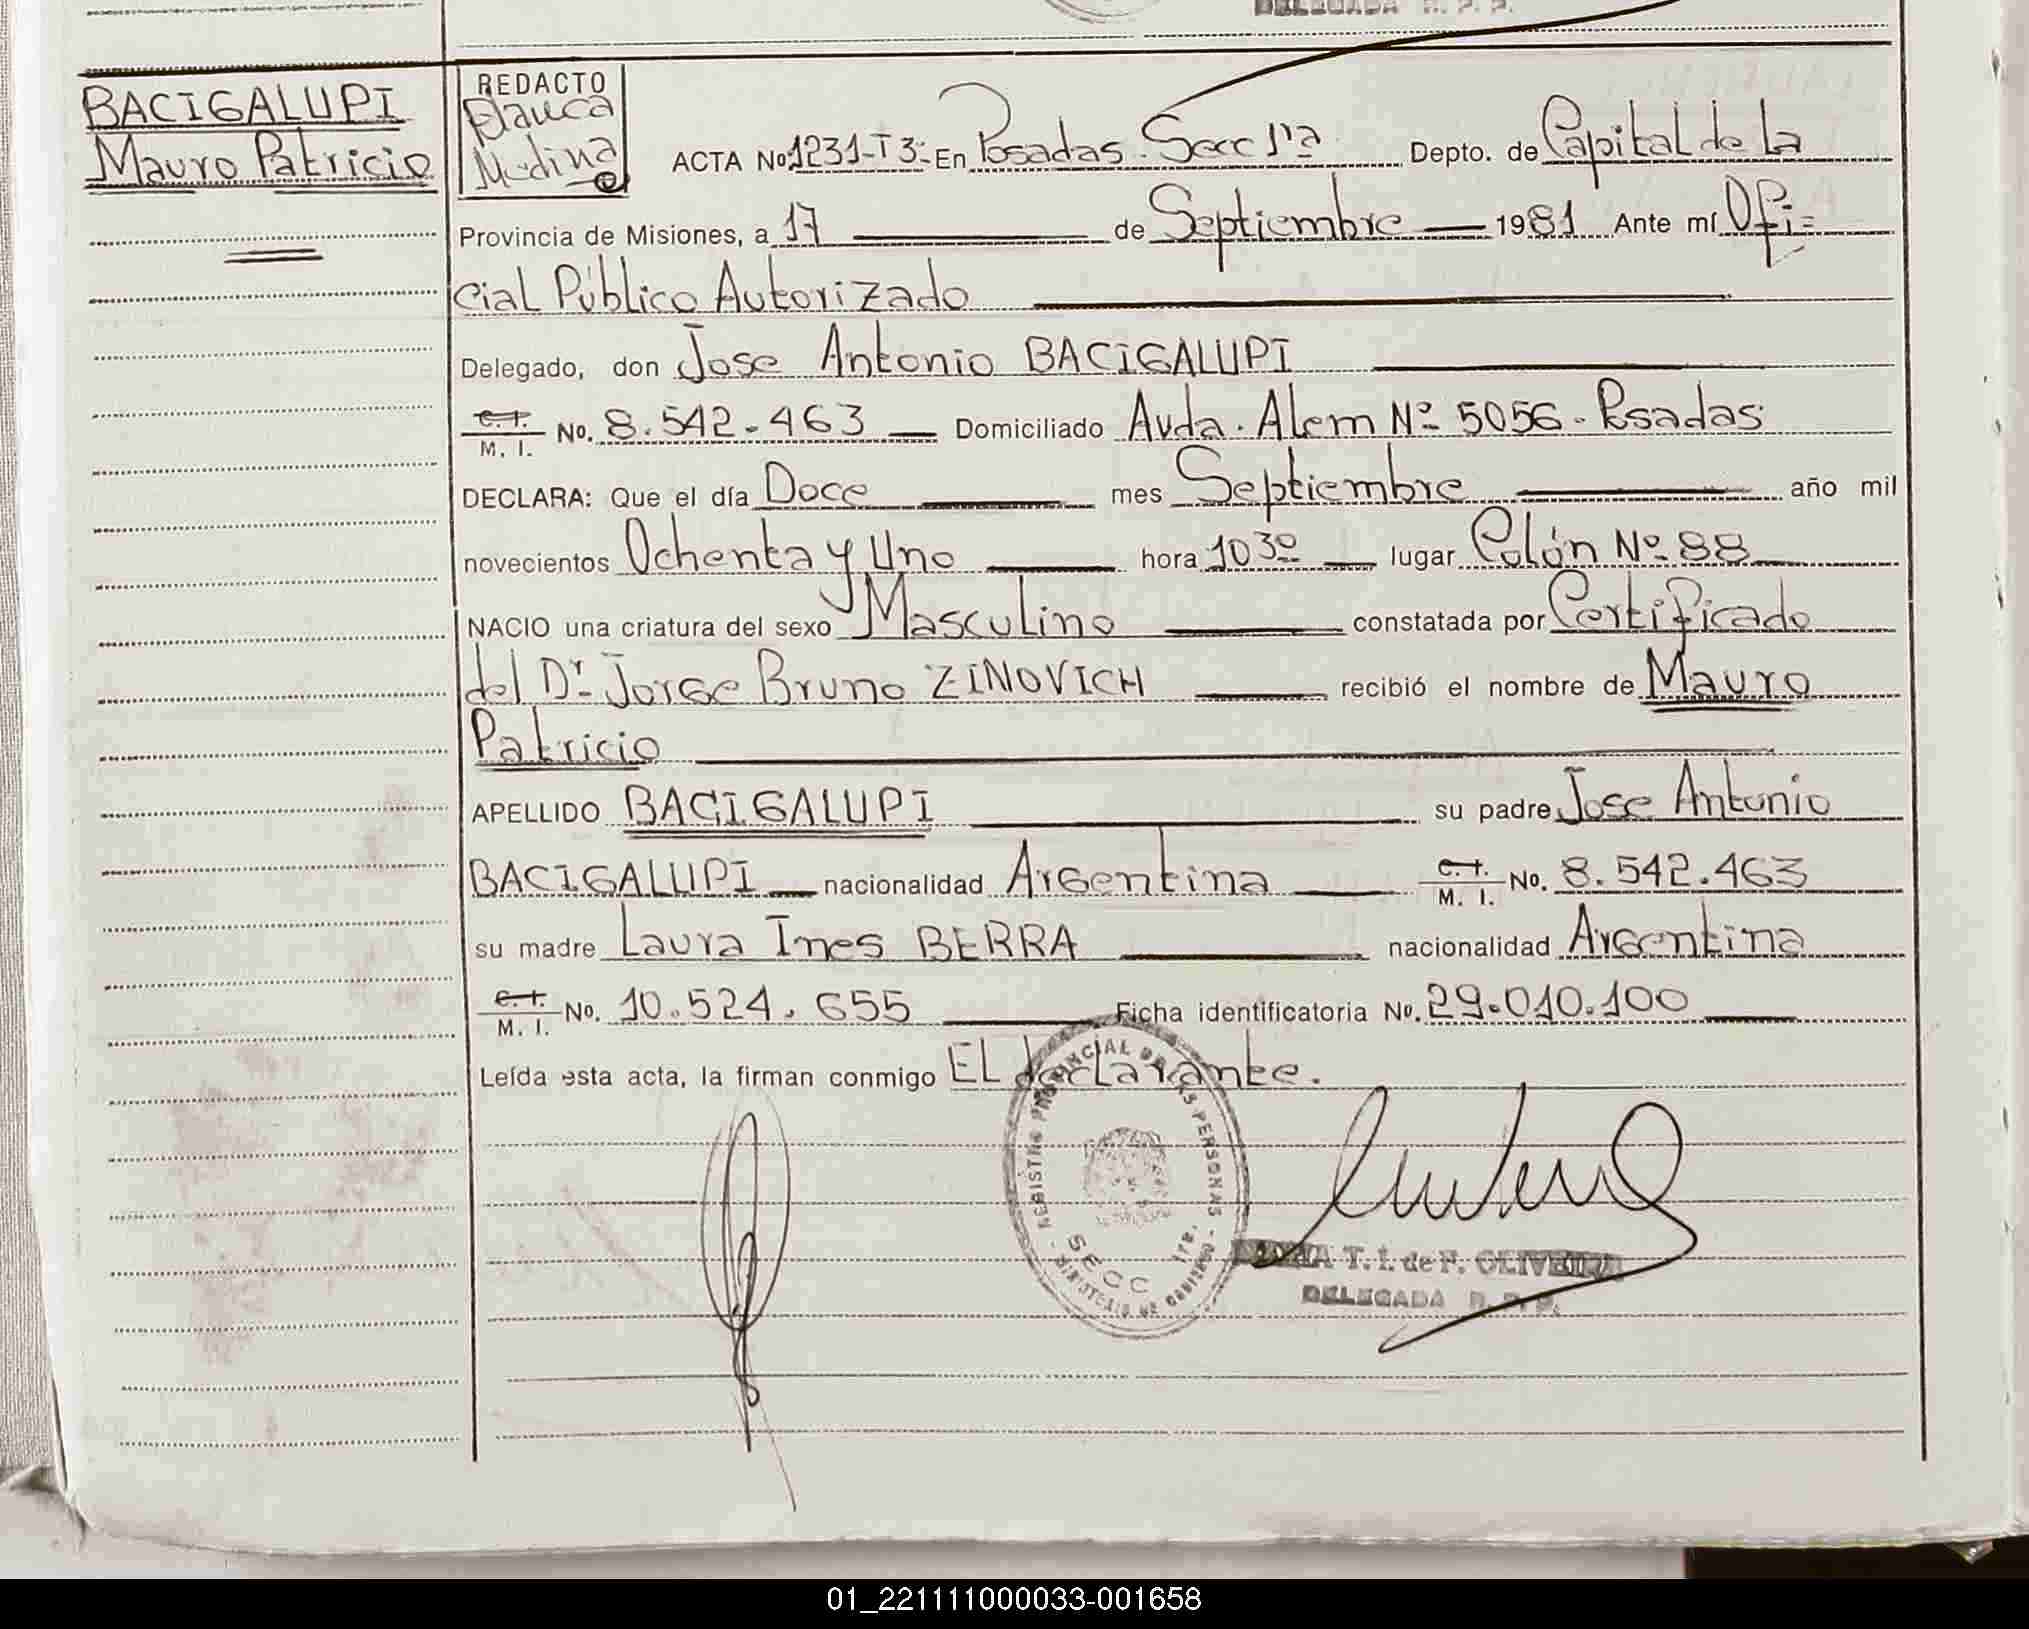 DELEGADA R. P. P.
BACIGALUPI
Mauro Patricio
REDACTO
Glauca
Medina
ACTA No 1231-T3- En Posadas. Secc 1ra Depto. de Capital de la
Provincia de Misiones, a 17 de Septiembre 1981 Ante mí Ofi=
cial Público Autorizado
Delegado, don Jose Antonio BACIGALUPI
C. I.
M. I. No. 8.542.463 Domiciliado Avda. Alem Nº 5056 - Posadas
DECLARA: Que el día Doce mes Septiembre año mil
novecientos Ochenta y Uno hora 10 30 lugar Colón Nº 88
NACIO una criatura del sexo Masculino constatada por Certificado
del Dr. Jorge Bruno ZINOVICH recibió el nombre de Mauro
Patricio
APELLIDO BACIGALUPI su padre Jose Antonio
BACIGALUPI nacionalidad Argentina C. I.
M. I. No. 8.542.463
su madre Laura Ines BERRA nacionalidad Argentina
C. I.
M. I. No. 10.524.655 Ficha identificatoria No. 29.010.100
Leída esta acta, la firman conmigo EL declarante.
REGISTRO PROVINCIAL DE LAS PERSONAS - MINISTERIO DE GOBIERNO -
SECC 1ra.
T. I. de F. OLIVEIRA
DELEGADA R. P. P.
01_221111000033-001658